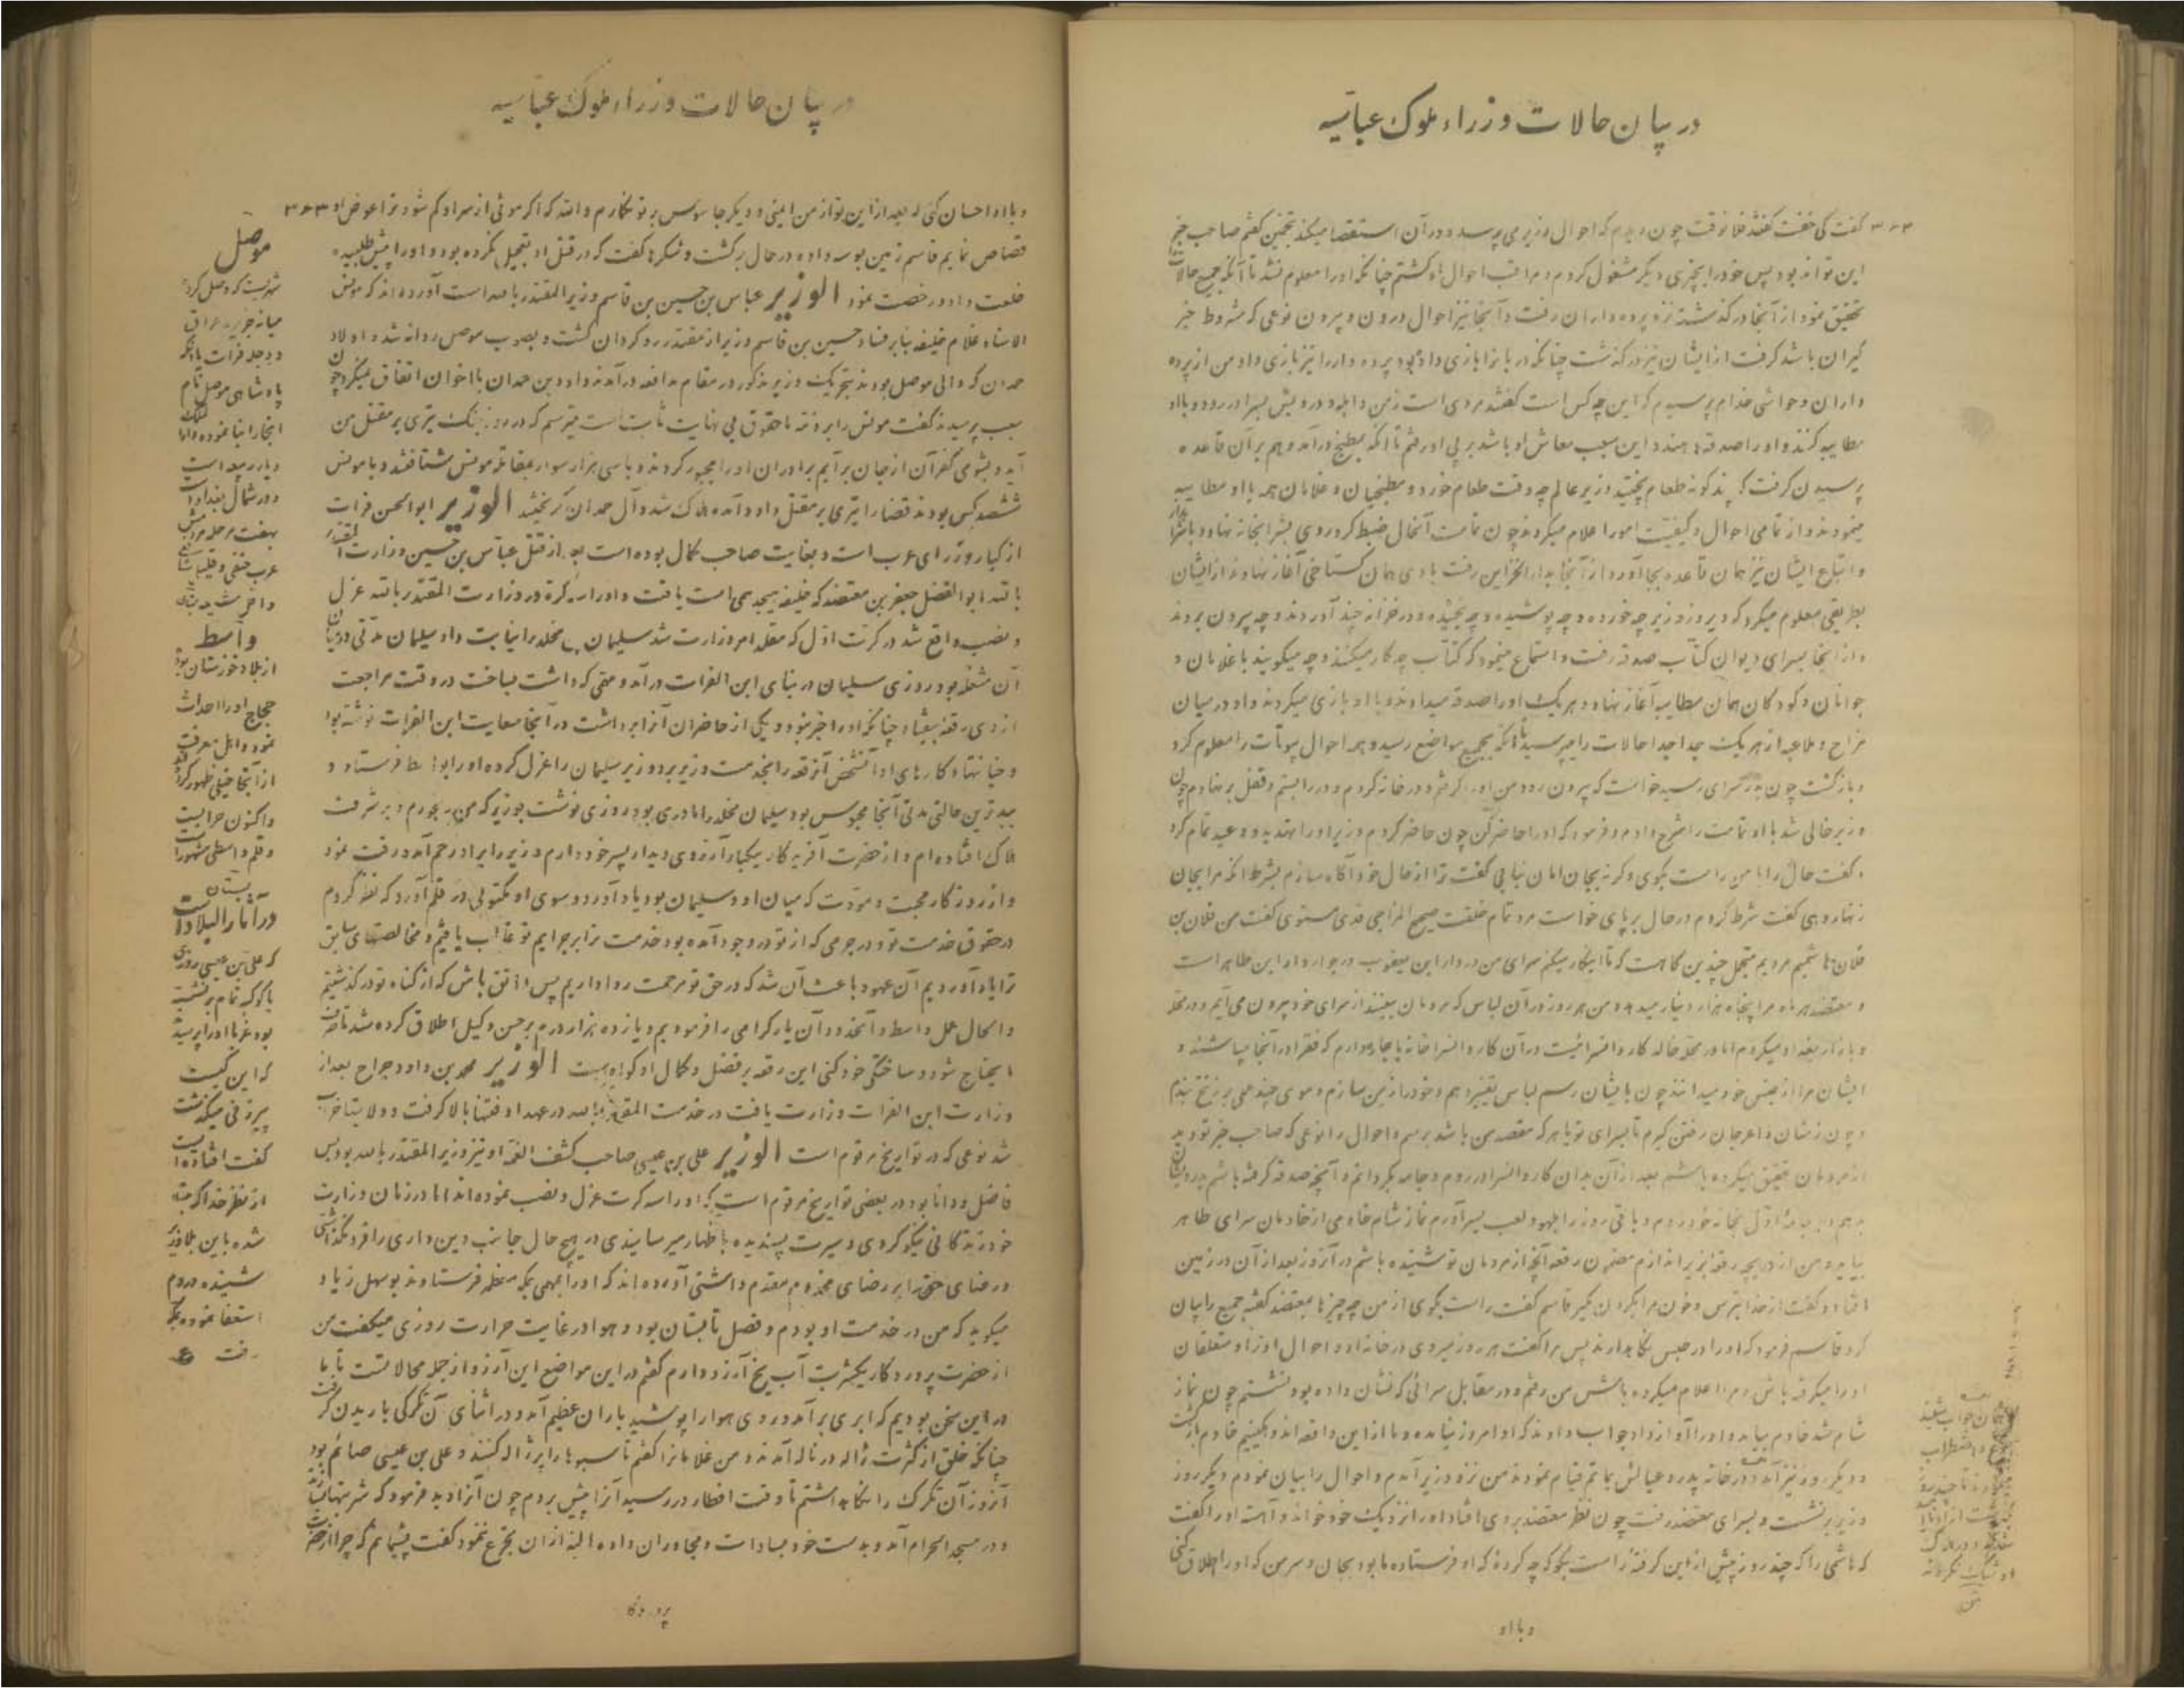 در بیان حالات وزراء ملوک عباسیه
۳۶۲ گفت کی خفت گفتند فلان وقت چون دیدم که احوال وزیر می پرسد و در آن استقصا میکند بخنین گفتم صاحب خبر
این تواند بود پس خود را بچیزی دیگر مشغول کردم و مراقب احوال او گشتم چنانکه او را معلوم نشد تا آنکه جمیع حالات
تحقیق نمود از آنجا در گذشته نزد پرده داران رفت و آنجا نیز احوال درون و بیرون نوعی که شروط خبر
گیران باشد گرفت از ایشان نیز در گذشت چنانکه در بانرا بازی داده بود پرده دار را نیز بازی داد من از پرده
داران و حواشی خدام پرسیدم که این چه کس است گفتند مردی است زمن و ابله و درویش بسر در رود و با او
مطایبه کنند و او را صدقه دهند و این سبب معاش او باشد بر پی او رفتم تا آنکه بمطبخ درآمد و هم بر آن قاعده
پرسیدن گرفت که چگونه طعام پختید وزیر عالم چه وقت طعام خورد و مطبخیان و غلامان همه با او مطایبه
مینمودند و از تمامی احوال و کیفیت امور اعلام میکردند چون تمامت آنحال ضبط کرد روی بشرابخانه نهاد و با شرابدار
و اتباع ایشان نیز همان قاعده بجا آورد و از آنجا بدار الخزاین رفت با وی همان گستاخی آغاز نهادند از ایشان
بطریقی معلوم میکرد که دیروز وزیر چه خورده و چه پوشیده و چه بخشیده و در خزانه چند آوردند و چه بیرون بردند
و از اینجا بسرای دیوان کتّاب صدقه رفت و استماع مینمود که کتّاب چه کار میکنند و چه میگویند با غلامان و
جوانان و کودکان همان مطایبه آغاز نهاد و هر یک او را صدقه میدادند و با او بازی میکردند و او در میان
مزاح و ملاعبه از هر یک جدا جدا حالات را میپرسید تا آنکه بجمیع مواضع رسید و همه احوال بیوتات را معلوم کرد
و بازگشت چون بدر سرای رسید خواست که بیرون رود من او را گرفتم و در خانه کردم و در را بستم و قفل بر نهادم چون
وزیر خالی شد با او تمامت را شرح دادم و فرمود که او را حاضر کن چون حاضر کردم وزیر او را تهدید و وعید تمام کرد
و گفت حال را با من راست بگوی و گرنه بجان امان نیابی گفت ترا از حال خود آگاه سازم بشرط آنکه مرا بجان
زنهار دهی گفت شرط کردم در حال بر پای خواست مرد تمام خلقت صحیح المزاج قدی مستوی گفت من فلان بن
فلان هاشمیم مردیم متجمل چندین گاهست که تا اینکار میکنم سرای من در دار ابن یعقوب در جوار دار ابن طاهر است
و معتضد هر ماه مرا پنجاه هزار دینار میدهد و من هر روز در آن لباس که مردمان بینند از سرای خود بیرون می آیم و در محله
و بازار بغداد میگردم اما در محله خالد کاروانسرائیست در آن کاروانسرا خانه باجاره دارم که فقرا در آنجا میباشند و
ایشان مرا از جنس خود میدانند چون بایشان رسم لباس تغییر دهم و خود را زمین سازم و موی چند عملی بر زنخ بندم
و چون زشتان و اعرجان رفتن گیرم تا بسرای تو یا هر که مقصد من باشد برسم و احوال را نوعی که صاحب خبر تو دید
از مردمان تحقیق میکرده باشم بعد از آن بدان کاروانسرا در روم و جامه بگردانم و آنچه صدقه گرفته باشم بدرویشان
دهم و بر جامه اول بخانه خود روم و باقی روز را بلهو و لعب بسر آورم نماز شام خادمی از خادمان سرای طاهر
بیاید و من از دریچه رقعه بزیر اندازم مضمون رقعه آنچه از مردمان تو شنیده باشم در آنروز بعد از آن در زمین
افتاد و گفت از خدا بترس و خون مرا بگردن مگیر قاسم گفت راست بگوی از من چه چیزها بمعتضد گفتهٔ جمیع را بیان
کرد قاسم فرمود که او را در حبس نگاه دارند پس مرا گفت هر روز میروی در خانه او و احوال او و متعلقان
او را میگرفته باش و مرا اعلام میکرده باش من رفتم و در مقابل سرائی که نشان داده بود نشستم چون نماز
شام شد خادم بیامد و او را آواز داد جواب دادند که او امروز نیامده و ما از این واقعه اندوهگینیم خادم بازگشت
و دیگر روز نیز آمد در خانه پدر و عیالش بماتم قیام نمودند من نزد وزیر آمدم و احوال را بیان نمودم دیگر روز
وزیر برنشست و بسرای معتضد رفت چون نظر معتضد بر وی افتاد او را نزدیک خود خواند و آهسته او را گفت
که هاشمی را که چند روز پیش از این گرفتهٔ راست بگو که چه کردهٔ که او فرستاده ما بود بجان و سر من که او را اطلاق کنی
و با او
در بیان حالات وزراء ملوک عباسیه
و با او احسان کنی که بعد از این تو از من ایمنی و دیگر جاسوس بر تو نگمارم و الله که اگر موئی از سر او کم شود ترا عوض او ۳۶۳
قصاص نمایم قاسم زمین بوسه داده در حال برگشت و شکرها گفت که در قتل او تعجیل نکرده بود و او را پیش طلبیده
خلعت داد و رخصت نمود الوزیر عباس بن حسین بن قاسم وزیر المقتدر بالله است آورده اند که مونس
الاستاد غلام خلیفه بنابر فساد حسین بن قاسم وزیر از مقتدر روگردان گشت و بصوب موصل روانه شد و اولاد
حمدان که والی موصل بودند بتحریک وزیر مذکور در مقام مدافعه درآمدند و داود بن حمدان با اخوان اتفاق نمیکرد چون
سبب پرسیدند گفت مونس را بر ذمه ما حقوق بی نهایت ثابت است میترسم که در روز جنگ تیری بر مقتل من
آید و بشومی کفران از جان برآیم برادران او را مجبور کردند و با سی هزار سوار بمقابله مونس شتافتند و با مونس
ششصد کس بودند قضا را تیری بر مقتل داود آمده هلاک شد و آل حمدان گریختند الوزیر ابوالحسن فرات
از کبار وزرای عرب است و بغایت صاحب کمال بوده است بعد از قتل عباس بن حسین وزارت المقتدر
بالله ابوالفضل جعفر بن معتضد که خلیفه هیجدهمی است یافت و او را سه کرة در وزارت المقتدر بالله عزل
و نصب واقع شد در کرّت اوّل که متقلد امر وزارت شد سلیمان بن مخلد را نیابت داد سلیمان مدتی در میان
آن مشغله بود روزی سلیمان در بنای ابن الفرات درآمد و حقی که داشت نباخت در وقت مراجعت
از وی رقعه بیفتاد چنانکه او را خبر نبود و یکی از حاضران آنرا برداشت در آنجا سعایت ابن الفرات نوشته بود
و خیانتها و کارهای او آنشخص آنرقعه را بخدمت وزیر برد وزیر سلیمان را عزل کرده او را بواسط فرستاد و
ببدترین حالتی مدتی آنجا محبوس بود سلیمان مخلد را مادری بود روزی نوشت بوزیر که من رنجورم و بر شرف
هلاک افتاده ام و از حضرت آفریدگار یکبار آرزوی دیدار پسر خود دارم وزیر را بر او رحم آمد و رقت نمود
و از روزگار محبت و مودّت که میان او و سلیمان بود یاد آورد و سوی او مکتوبی در قلم آورد که نظر کردم
در حقوق خدمت تو و در جرمی که از تو در وجود آمده بود خدمت ترا بر جرایم تو غالب یافتم و مخالصتهای سابق
ترا یاد آوردیم آن عهود باعث آن شد که در حق تو مرحمت روا داریم پس واثق باش که از گناه تو در گذشتیم
و الحال عمل واسط و آنحدود آن یار گرامی را فرمودیم و یازده هزار درم بر حسن وکیل اطلاق کرده شد تا صرف
مایحتاج شود و ساختگی خود کنی این رقعه بر فضل و کمال او گواه است الوزیر محمد بن داود جراح بعد از
وزارت ابن الفرات وزارت یافت در خدمت المقتدر بالله در عهد او فتنها بالا گرفت و ولایتها خراب
شد نوعی که در تواریخ مرقوم است الوزیر علی بن عیسی صاحب کشف الغمه او نیز وزیر المقتدر بالله بود بس
فاضل و دانا بود در بعضی تواریخ مرقوم است که او را سه کرت عزل و نصب نموده اند اما در زمان وزارت
خود زندگانی نیکو کردی و سیرت پسندیده باظهار میرسانیدی در هیچ حال جانب دین داری را فرو نگذاشتی
و رضای حق را بر رضای مخدوم مقدم داشتی آورده اند که او را بمهمی بمکه معظمه فرستادند بوسهل زیاد
میگوید که من در خدمت او بودم و فصل تابستان بود و هوا در غایت حرارت روزی میگفت من
از حضرت پروردگار یکشربت آب یخ آرزو دارم گفتم در این مواضع این آرزو از جمله محالاتست تا ما
در این سخن بودیم که ابری برآمد و روی هوا را پوشید باران عظیم آمد و در اثنای آن تگرگی باریدن گرفت
چنانکه خلق از کثرت ژاله در ناله آمدند و من غلامانرا گفتم تا سبوها را پر ژاله کنند و علی بن عیسی صائم بود
آنروز آن تگرگ را نگاه داشتم تا وقت افطار در رسید آنرا پیش بردم چون آنرا دید فرمود که شربتها بسازند
و در مسجد الحرام آمد و بدست خود بسادات و مجاوران داد و البته از آن تجرع ننمود گفت پشیمانم که چرا از حضرت
پروردگار
موصل
شهریست که وصل کرده
میانه جزیره و عراق
و دجله و فرات یا آنکه
پادشاهی موصل نام
آنجا را بنا نموده و از
دیار ربیعه است
و در شمال بغداد است
بهفت مرحله مردمش
عرب حنفی و قلیلی شافعی
واسط
از بلاد خوزستان بوده
حجاج او را احداث
نموده و اهل معرفت
از آنجا خیلی ظهور کرده اند
و اکنون خرابست
و قلم واسطی مشهور است
بستان
در آثار البلاد است
که علی بن عیسی روزی
با کوکبه تمام برنشسته
بود غربا او را پرسیدند
که این کیست
پیرزنی میگذشت
گفت افتاده ایست
از نظر خدا که مبتلا
شده باین بلا وزیر
شنیده در دم
استعفا نموده بمکه
رفت